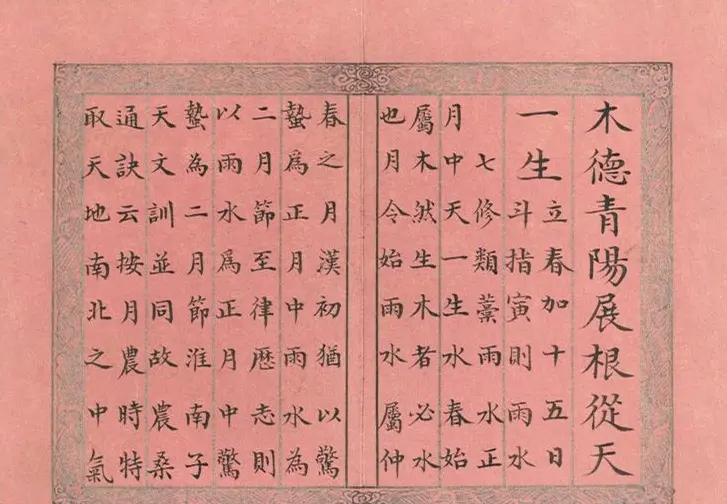 木德青陽展根從天
一生
立春加十五日
斗指寅則雨水
七修類藁雨水正
月中天一生水春始
屬木然生木者必水
也月令始雨水屬仲
春之月漢初猶以驚
蟄爲正月中雨水為
二月節至律厯志則
以雨水爲正月中驚
蟄為二月節淮南子
天文訓並同故農桑
通訣云按月農時特
取天地南北之中氣